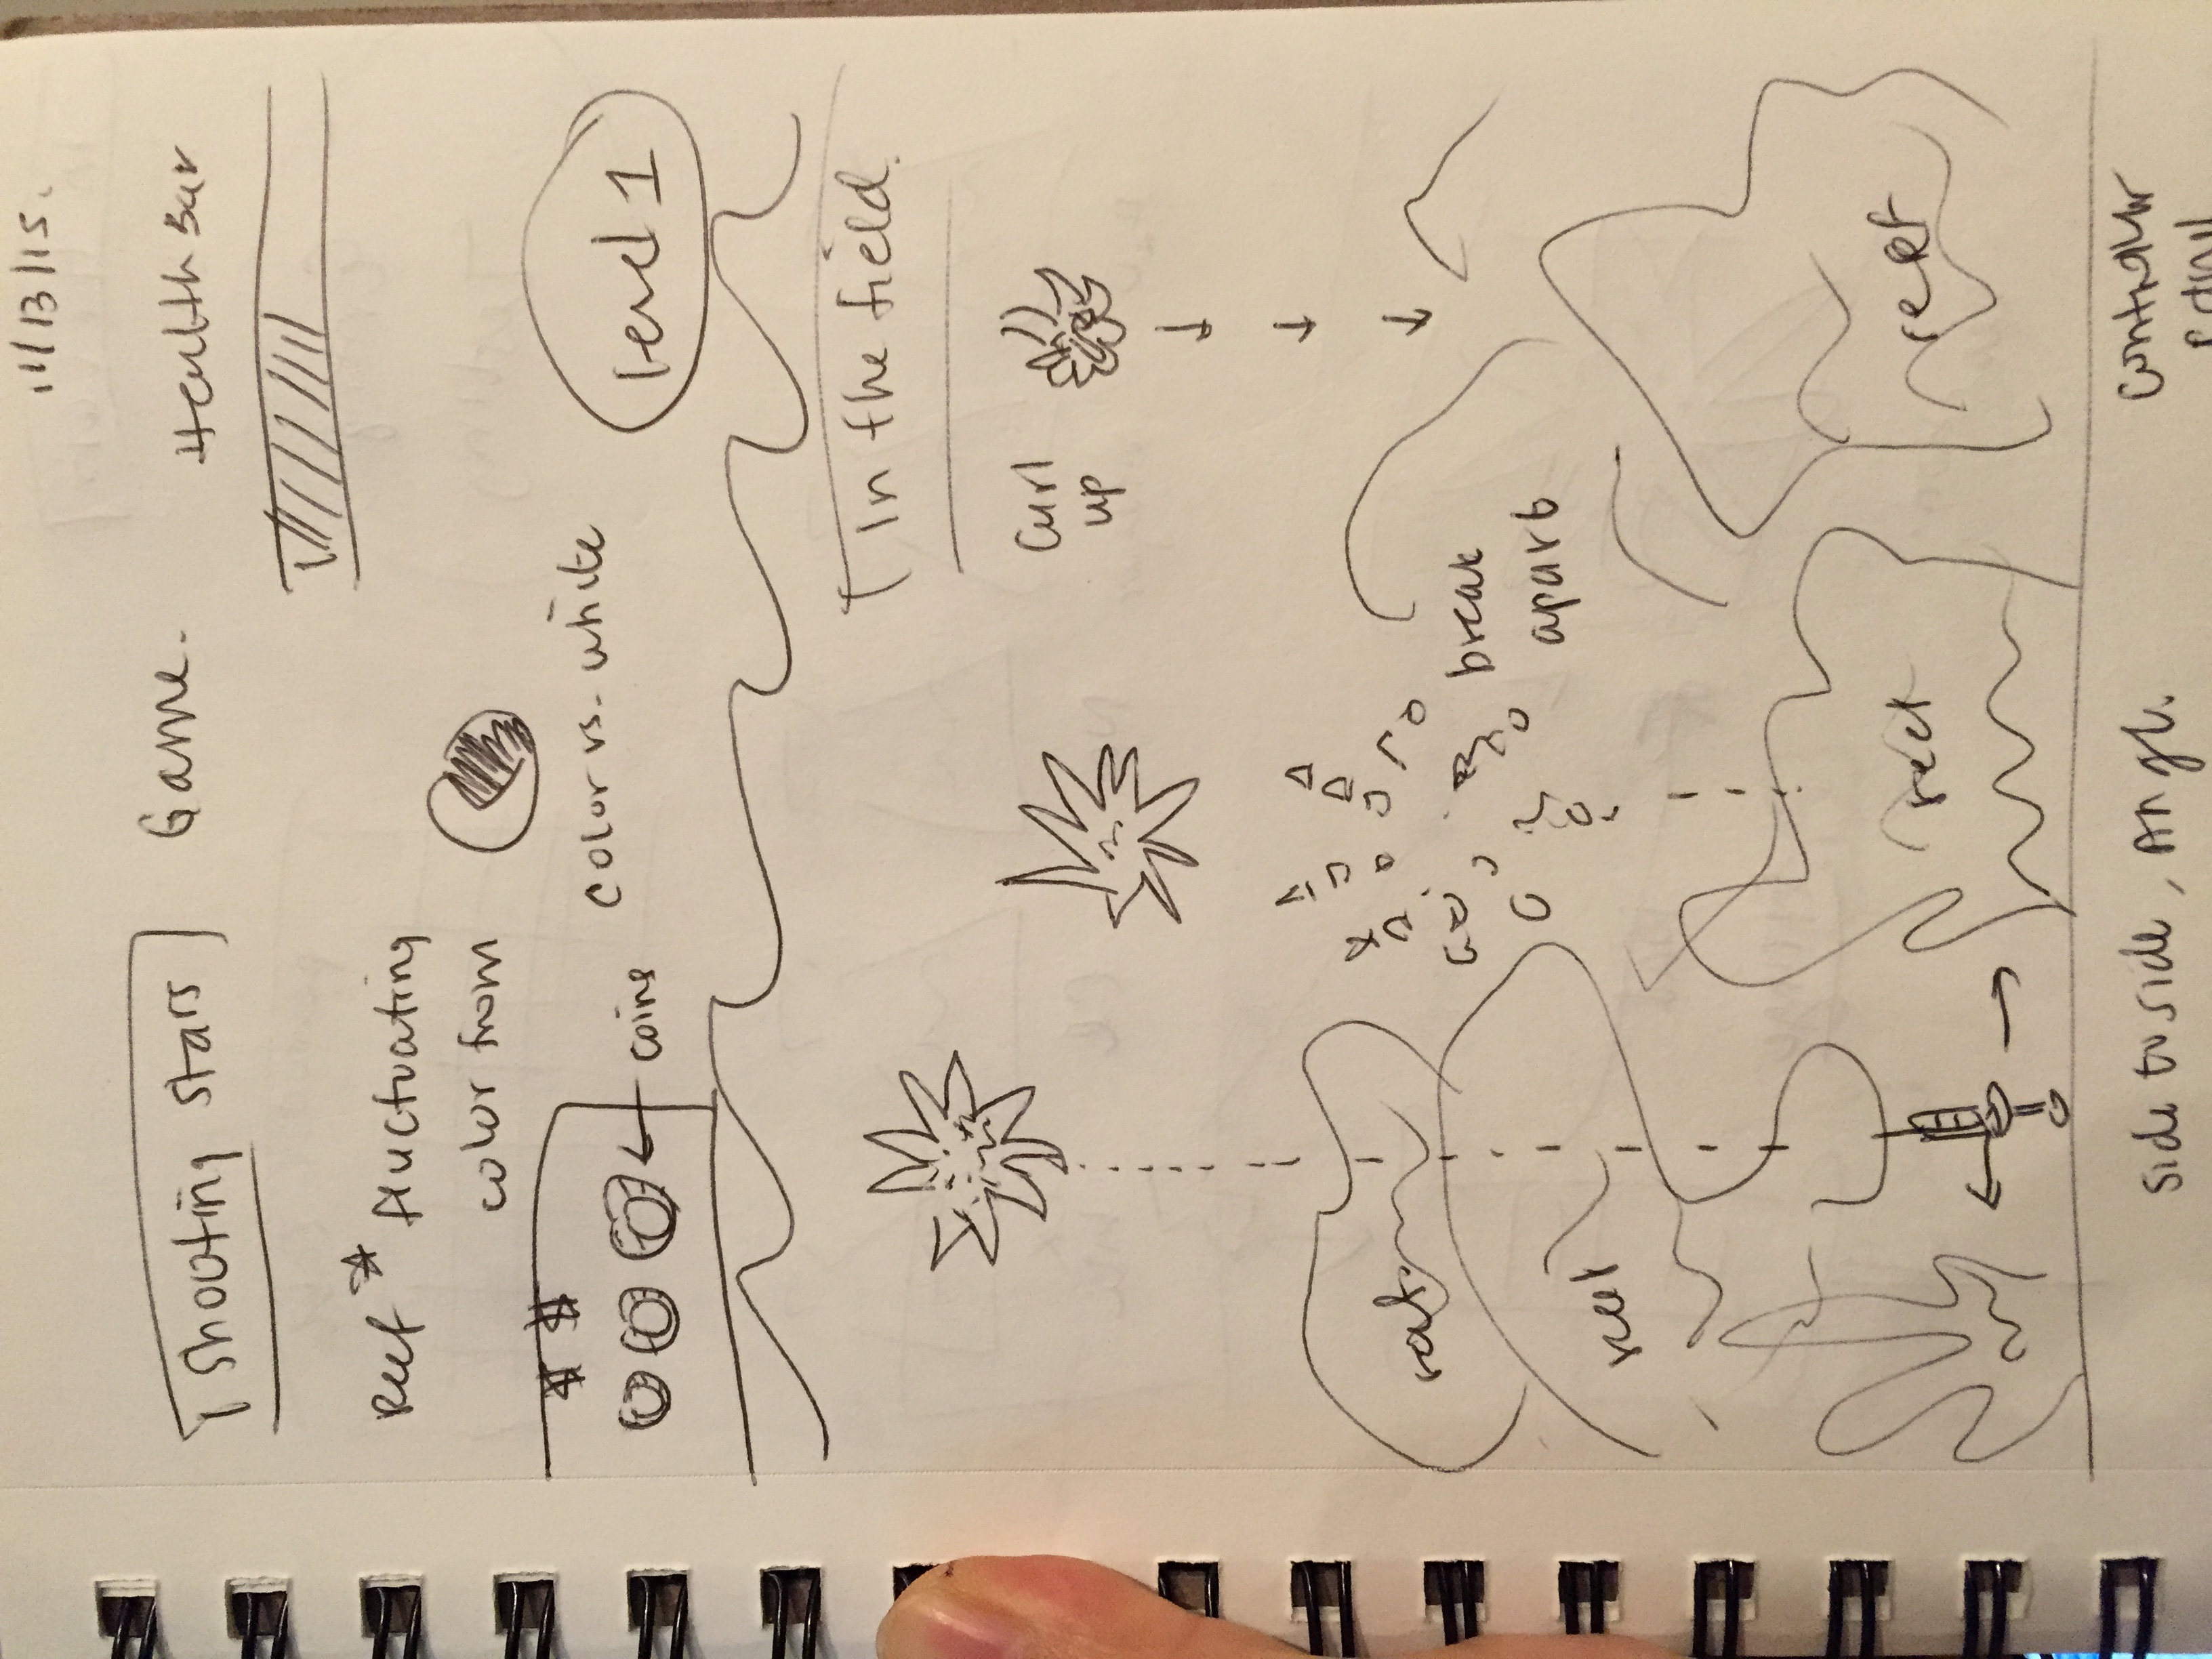 11/13/15.
Shooting stars
Game.
Health Bar
Reef * fluctuating
color from
color vs. white
$ $
coins
Level 1
In the field.
Curl
up
break
apart
reef
reef
reef
reef
side to side, Angle.
controller